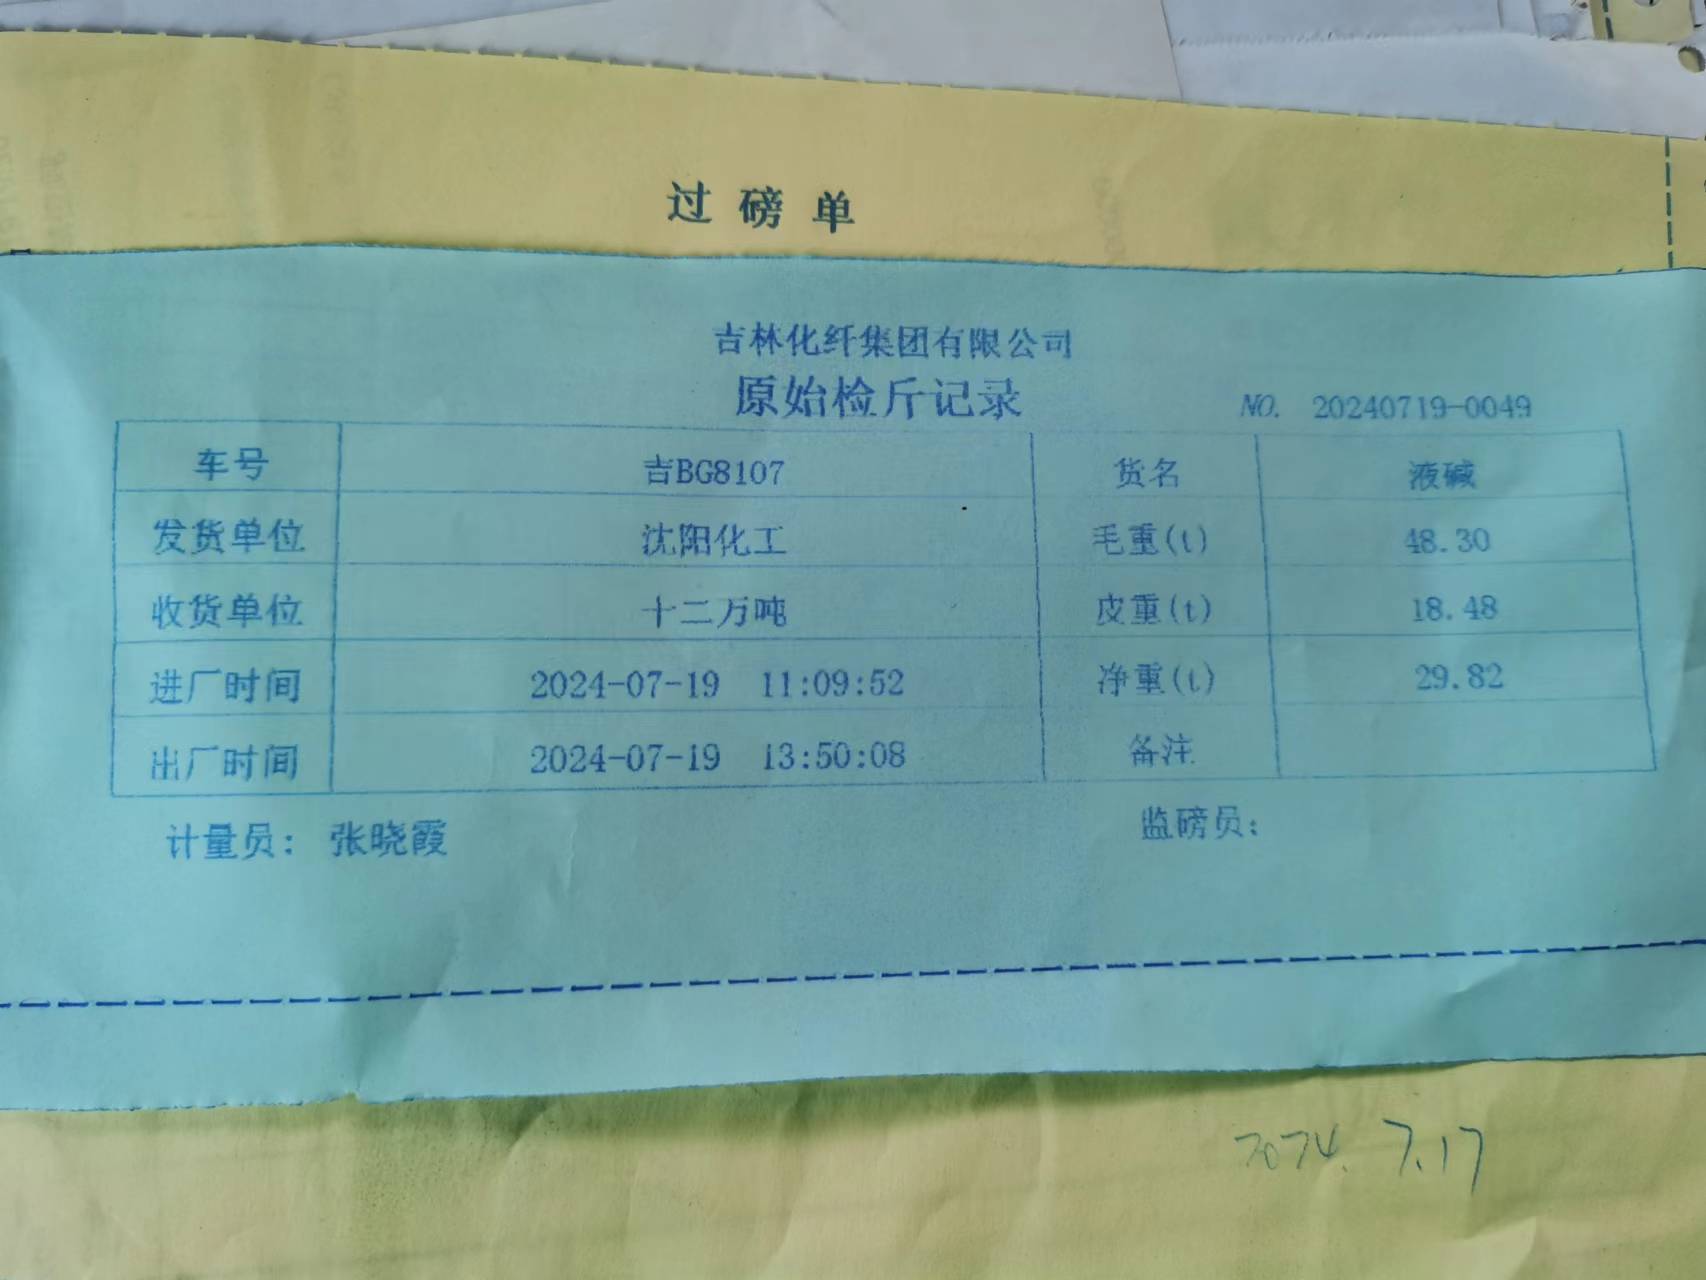 过磅单
吉林化纤集团有限公司
原始检斤记录
NO. 20240719-0049
车号 吉BG8107 货名 液碱
发货单位 沈阳化工 毛重(t) 48.30
收货单位 十二万吨 皮重(t) 18.48
进厂时间 2024-07-19 11:09:52 净重(t) 29.82
出厂时间 2024-07-19 13:50:08 备注
计量员: 张晓霞 监磅员:
2024.7.17